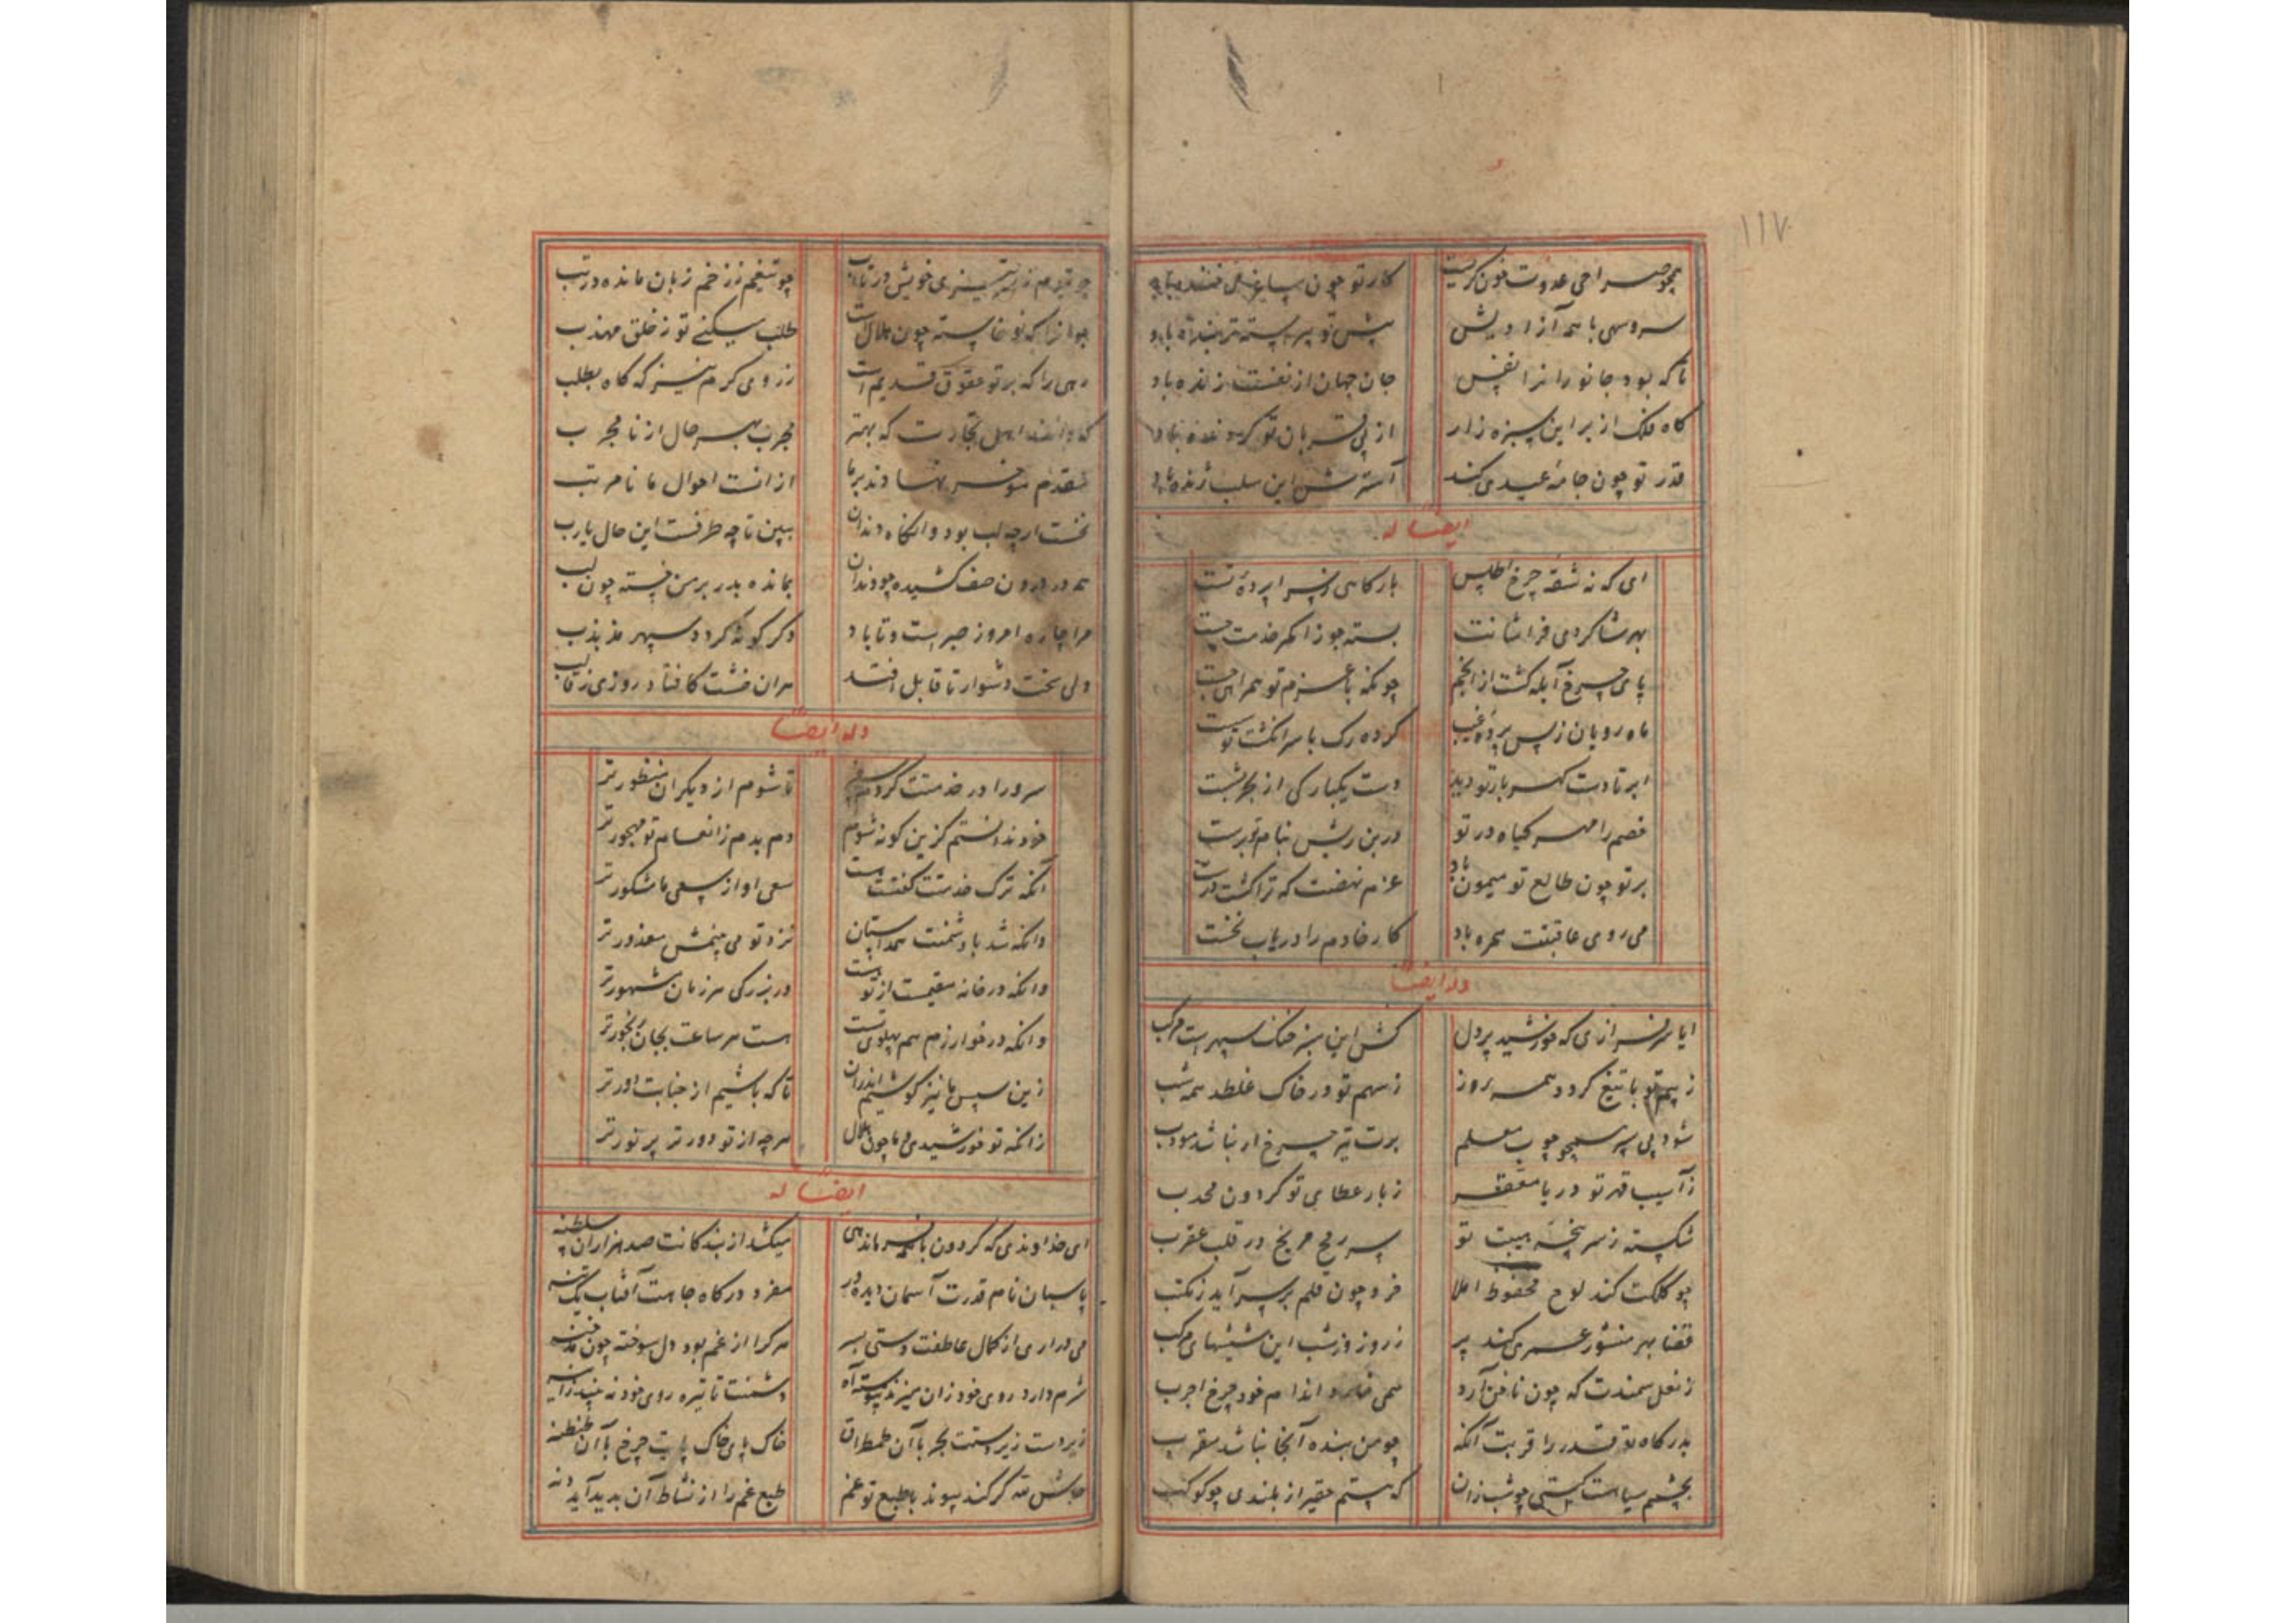 ۱۱۷
همچو صراحی عدوت خون گریست کار تو چون ساغر می خنده باد
سرو سهی با همه آزادیش پیش تو پیوسته تر بنده باد
تا که بود جانوران را نفس جان جهان از نفست زنده باد
گاه فلک از بر این سبزه زار از پی قربان تو گردنده باد
قدر تو چون جامه عید می کند آستر این سلب ژنده باد
ایضا له
ای که نه شقه چرخ اطلس بارگاهی ز سراپرده تست
بهر شاگردی فراشانت بسته جوزا کمر خدمت چست
پای چرخ آبله گشت از انجم چونکه با عزم تو همراهی جست
ماه رویان ز پس پرده غیب کرده رگ با سر انگشت تو
ابر تا دست گهر بار تو دید دست یکبارگی از بحر بشست
خصم را مهر گیاه در تو در بن ریش بنام تو برست
بر تو چون طالع تو میمون باد عزم نهضت که ترا گشت درست
می روی عاقبتت همره باد کار خادم را دریاب نخست
وله ایضا
ایا سرفرازی که خورشید پر دل کش این سبز خنگ سپهرست مرکب
ز بیم تو با تیغ گردد همه روز ز سهم تو در خاک غلطد همه شب
شود پی سپر همچو چوب معلم برت تیر چرخ ار نباشد مودب
ز آسیب قهر تو دریا مقعر ز بار عطای تو گردون محدب
شکسته ز سر پنجه هیبت تو سر رمح مریخ در قلب عقرب
چو کلکت کند لوح محفوظ املا خرد چون قلم بر سر آید ز مکتب
قضا بهر منشور عمر می کند پر ز روز و ز شب این ششهای مرکب
ز نعل سمندت که چون ناخن آرد همی خارد اندام خود چرخ اجرب
بدرگاه تو قدر را قربت آنکه چو من بنده آنجا نباشد مقرب
بچشم سیاهت کستی چو شب زان که هستم حقیر از بلندی چو کوکب
چو تیرم ز تیزی خویش در تاب چو تیغم ز زخم زبان مانده در تب
جوانرا که نو خاسته چون هلال است طلب میکنی تو ز خلق مهذب
رهی را که بر تو حقوق قدیم است ز روی کرم نیز گه گاه بطلب
که دانند اهل تجارت که بهتر مجرب بهر حال از نا مجرب
مقدم موخر نهادند بر ما از آنست احوال ما نا مرتب
نخست ارچه لب بود وانگاه دندان ببین تا چه طرفست این حال یارب
همه در درون صف کشیده چو دندان بمانده بدر بر من خسته چون لب
مرا چاره امروز صبر است و تا باد دگرگونه گردد سپهر مذبذب
ولی سخت دشوار تا قابل افتد هر آن خشت کافتاد روزی ز قالب
وله ایضا
سرورا در خدمتت کردم سفر تا شوم از دیگران منظورتر
خود ندانستم کزین گونه شوم دم بدم ز انعام تو مهجورتر
آنکه ترک خدمتت گفتست هست سعی او از سعی ما مشکورتر
وانکه شد با دشمنت همداستان نزد تو می بینمش معذورتر
وانکه در خانه مقیمست از تو در بزرگی هر زمان مشهورتر
وانکه در خوارزم هم پهلوی تست هست هر ساعت بجان رنجورتر
زین سپس ما نیز کوشیم اندران تا که باشیم از جنابت دورتر
زانکه تو خورشیدی و ما چون هلال هر چه از تو دورتر پر نورتر
ایضا له
ای خداوندی که گردون با همه فرماندهی میکشد از بندگانت صد هزاران سلطنه
پاسبان نام قدرت آسمان دیده ور مفرد درگاه جاهت آفتاب یک تنه
می دراری از کمال عاطفت دستی بسر هر کرا از غم بود دل سوخته چون
شرم دارد روی خود زان میزند پیوسته آه دشمنت تا تیره روی خود نه بیند ز آینه
زیر دست زیر دستت بحر با آن طمطراق خاک پای خاک پایت چرخ با آن طنطنه
کند پیوند با طبع تو غم طبع غم را از نشاط آن پدید آید